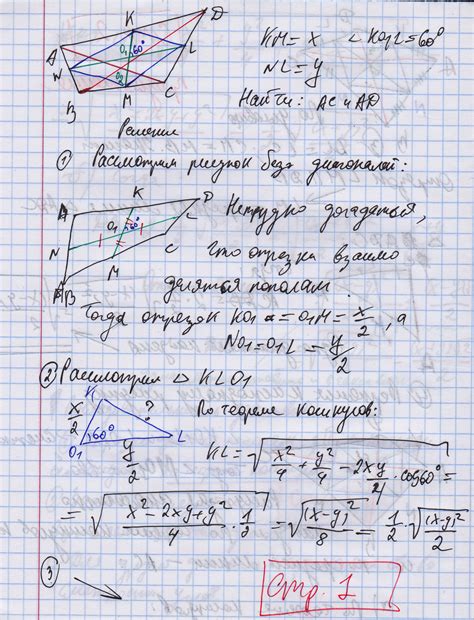 K D
A O₁ 60° L
N O₂
B M C
KM = x ∠KO₁L = 60°
NL = y
Найти: AC и AD
Решение
① Рассмотрим рисунок без диагоналей:
K D
A O₁ 60° L
N C
M
B B
Нетрудно догадаться,
что отрезки взаимо
делятся пополам.
Тогда отрезок KO₁ = O₁M = x/2, а
NO₁ = O₁L = y/2
② Рассмотрим △ KLO₁
K ?
x/2 60° L
O₁ y/2
По теореме косинусов:
KL = √(x²/4 + y²/4 − 2xy/4 · cos60°) =
= √((x² − 2xy + y²)/4 · 1/2) = √((x−y)²/8) = 1/2 · √((x−y)²/2)
③
Стр. 1